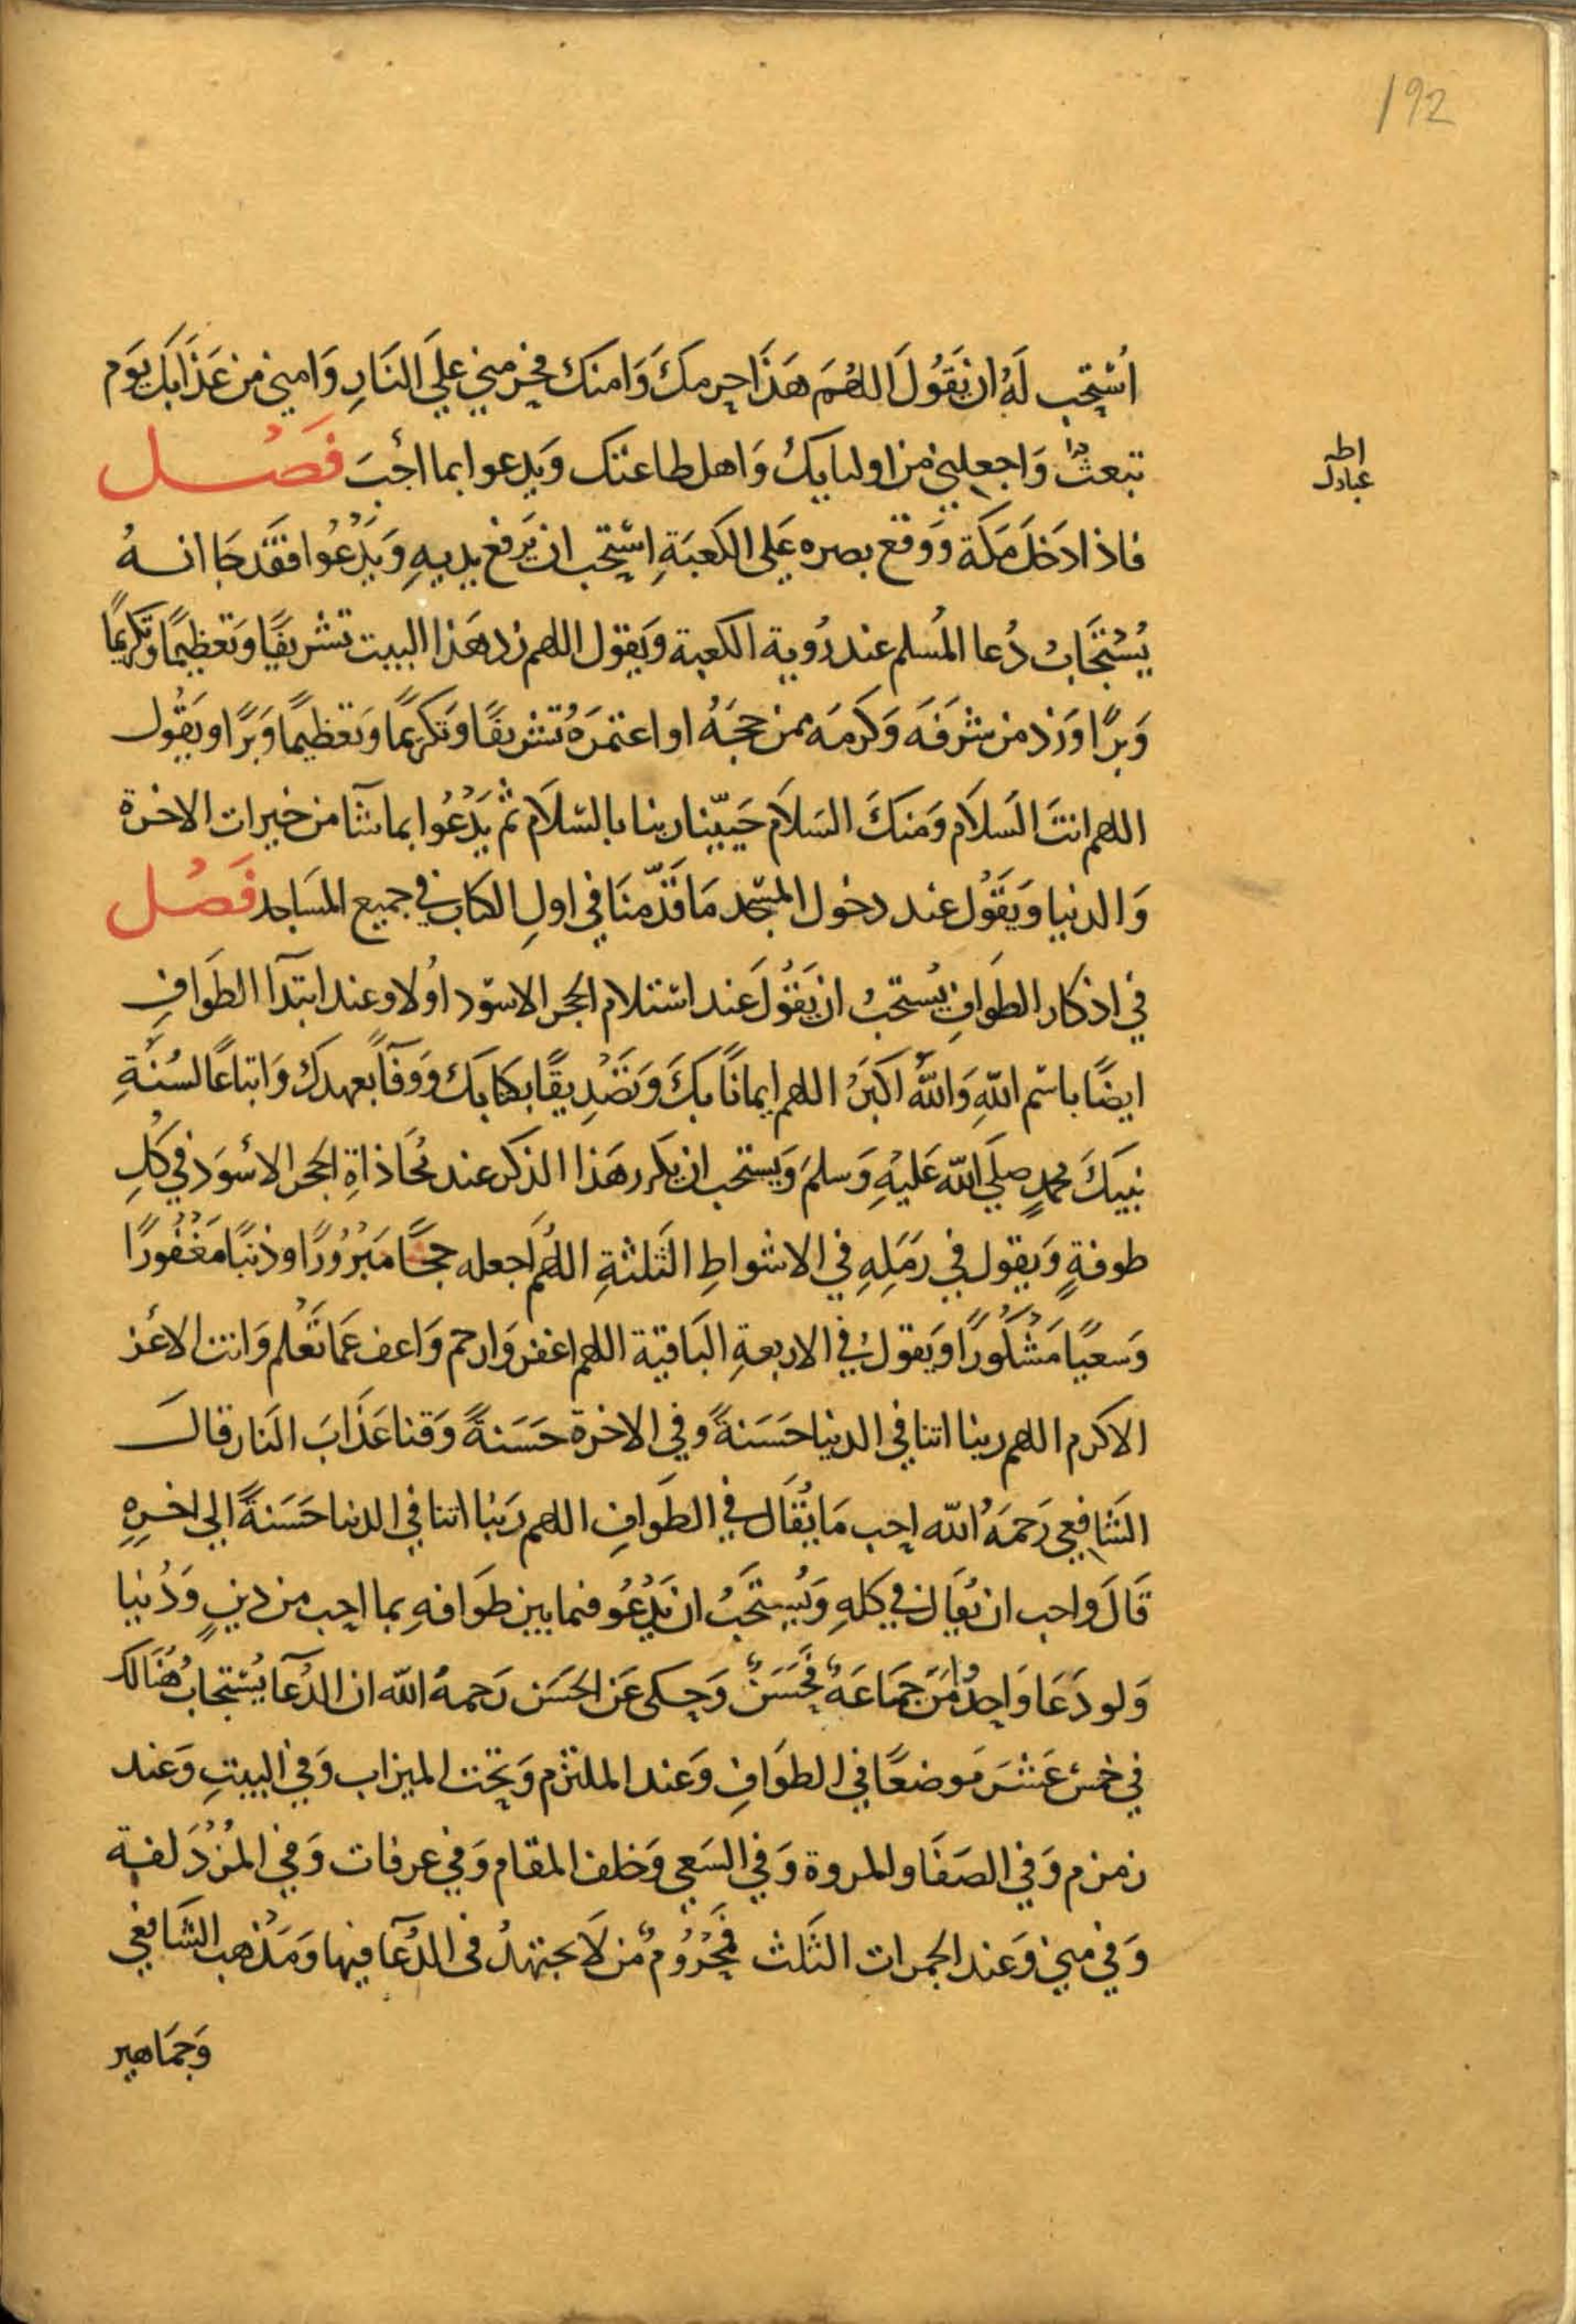 192
اسْتحب لَهُ ان يَقُولَ اللهُمَ هَذَا حِرمكَ وَامنكَ فحِرمني عليَ النَارِ وَامني من عَذَابكَ يَوَم
تبعثُ وَاجعلني من اوليايكَ وَاهل طاعتك وَيدعوا بما احَبَ فَصْل
اط
عبادك
فاذا دَخلَ مَكَة وَوَقع بصره عَلى الكَعبَةِ اسْتحب ان يَرفع يديهِ وَيَدْعُوا فقَد جَا انهُ
يُسْتَجَابُ دُعا المُسلم عند رُوية الكعبة وَيَقول اللهم زد هَذا البيت تشريفًا وَتَعظيمًا وَتكريمًا
وَبرًا وَزد من شرفَه وَكرمَه ممن حجَهُ او اعتمَرَهُ تشريفًا وَتكريمًا وَتعظيمًا وَبَرًا وَيَقُول
اللهم انتَ السَلاَم وَمنكَ السَلاَم حَيّنا ربنا بالسَلاَم ثم يَدْعُوا بما شآ من خيرات الاخرة
وَالدنيا وَيَقُول عند دخول المسْجد مَا قَدّمنَا في اولِ الكتاب في جميع المسَاجد فَصْل
في اذكار الطَوافِ يُستحبُ ان يَقُولَ عَند اسْتلام الحجر الاسوَد اولا وعند ابتدآ الطَوَافِ
ايضًا باسْم اللهِ وَاللهُ اكبَرُ اللهم ايمانًا بكَ وَتَصْدِيقًا بكتابكَ وَوَفآً بعهدكَ وَاتباعًا لسُنَةِ
نبيكَ محمدٍ صلى الله عَليْهِ وَسلمَ وَيستحب ان يكرر هَذا الذكر عند مُحَاذاةِ الحجر الاسْوَد في كُلِ
طوفةٍ وَيقول في رَمَلِهِ في الاشواطِ الثَلثةِ اللهُم اجعله حجًا مَبْرُورًا وَذنبًا مَغْفُورًا
وَسَعيًا مَشْكُورًا وَيَقولُ في الاربعةِ البَاقية اللهم اغفر وَارحم وَاعف عَمَا تَعْلم وَانت الاعَز
الاكرم اللهم ربنا اتنا في الدنيا حَسَنةً وفي الاخرة حَسَنةً وَقنا عَذَابَ النَار قالَ
الشَافعي رَحمَهُ الله احب مَا يُقَال في الطَوَافِ اللهم رَبنا اتنا في الدنيا حَسَنةً الي اخرِهِ
قَالَ وَاحب ان يُقال في كلهِ وَيُستَحَبُ ان يَدْعُو فيما بين طَوَافهِ بما احب من دينٍ وَدُنيا
وَلو دَعَا وَاحدٌ وَامَّنَ جَمَاعَةٌ فحَسَنٌ وَحكى عَن الحَسَن رَحمهُ الله ان الدُعآ يُسْتجابُ هُنَالك
في خمسَ عَشْرَ مَوضعًا في الطوَافِ وَعند الملتزم وَتحت الميزاب وَفي البيتِ وَعند
زمزم وَفي الصَفَا والمروة وَفي السَعي وَخلف المقام وَفي عرفات وَفي المُزْدَلفة
وَفي منى وَعند الجمرات الثَلث فمَحْرُومٌ من لاَ يجتهدُ فى الدُعآ فيها وَمَذهب الشَافعي
وَجمَاهير